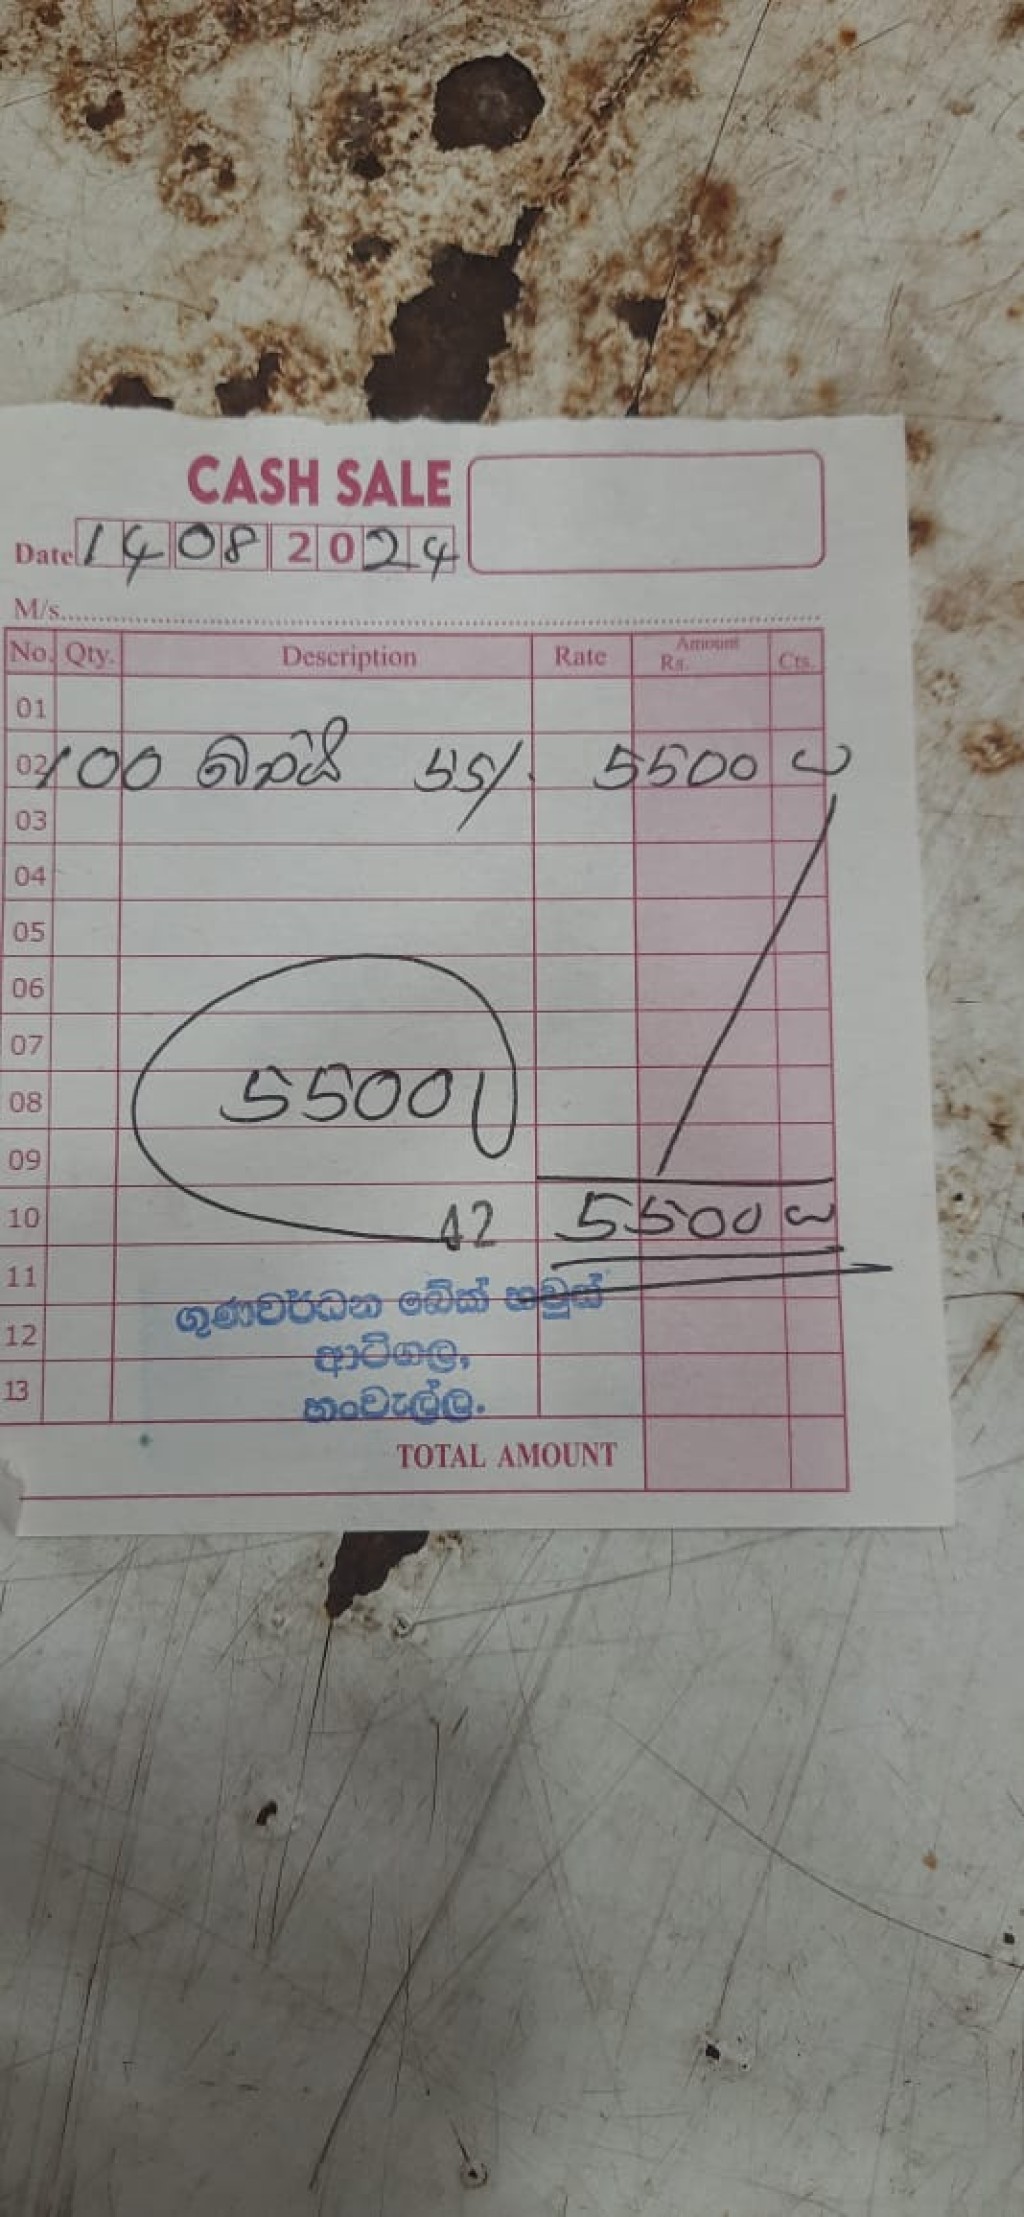 CASH SALE
Date 14 08 2024
M/s
No. Qty. Description Rate Amount Rs. Cts.
01
02 100 බනිස් 55/- 5500
03
04
05
06
07
08 5500
09
10 5500
11
ගුණවර්ධන බේක් හවුස්
12
ආටිගල,
13
හංවැල්ල.
TOTAL AMOUNT